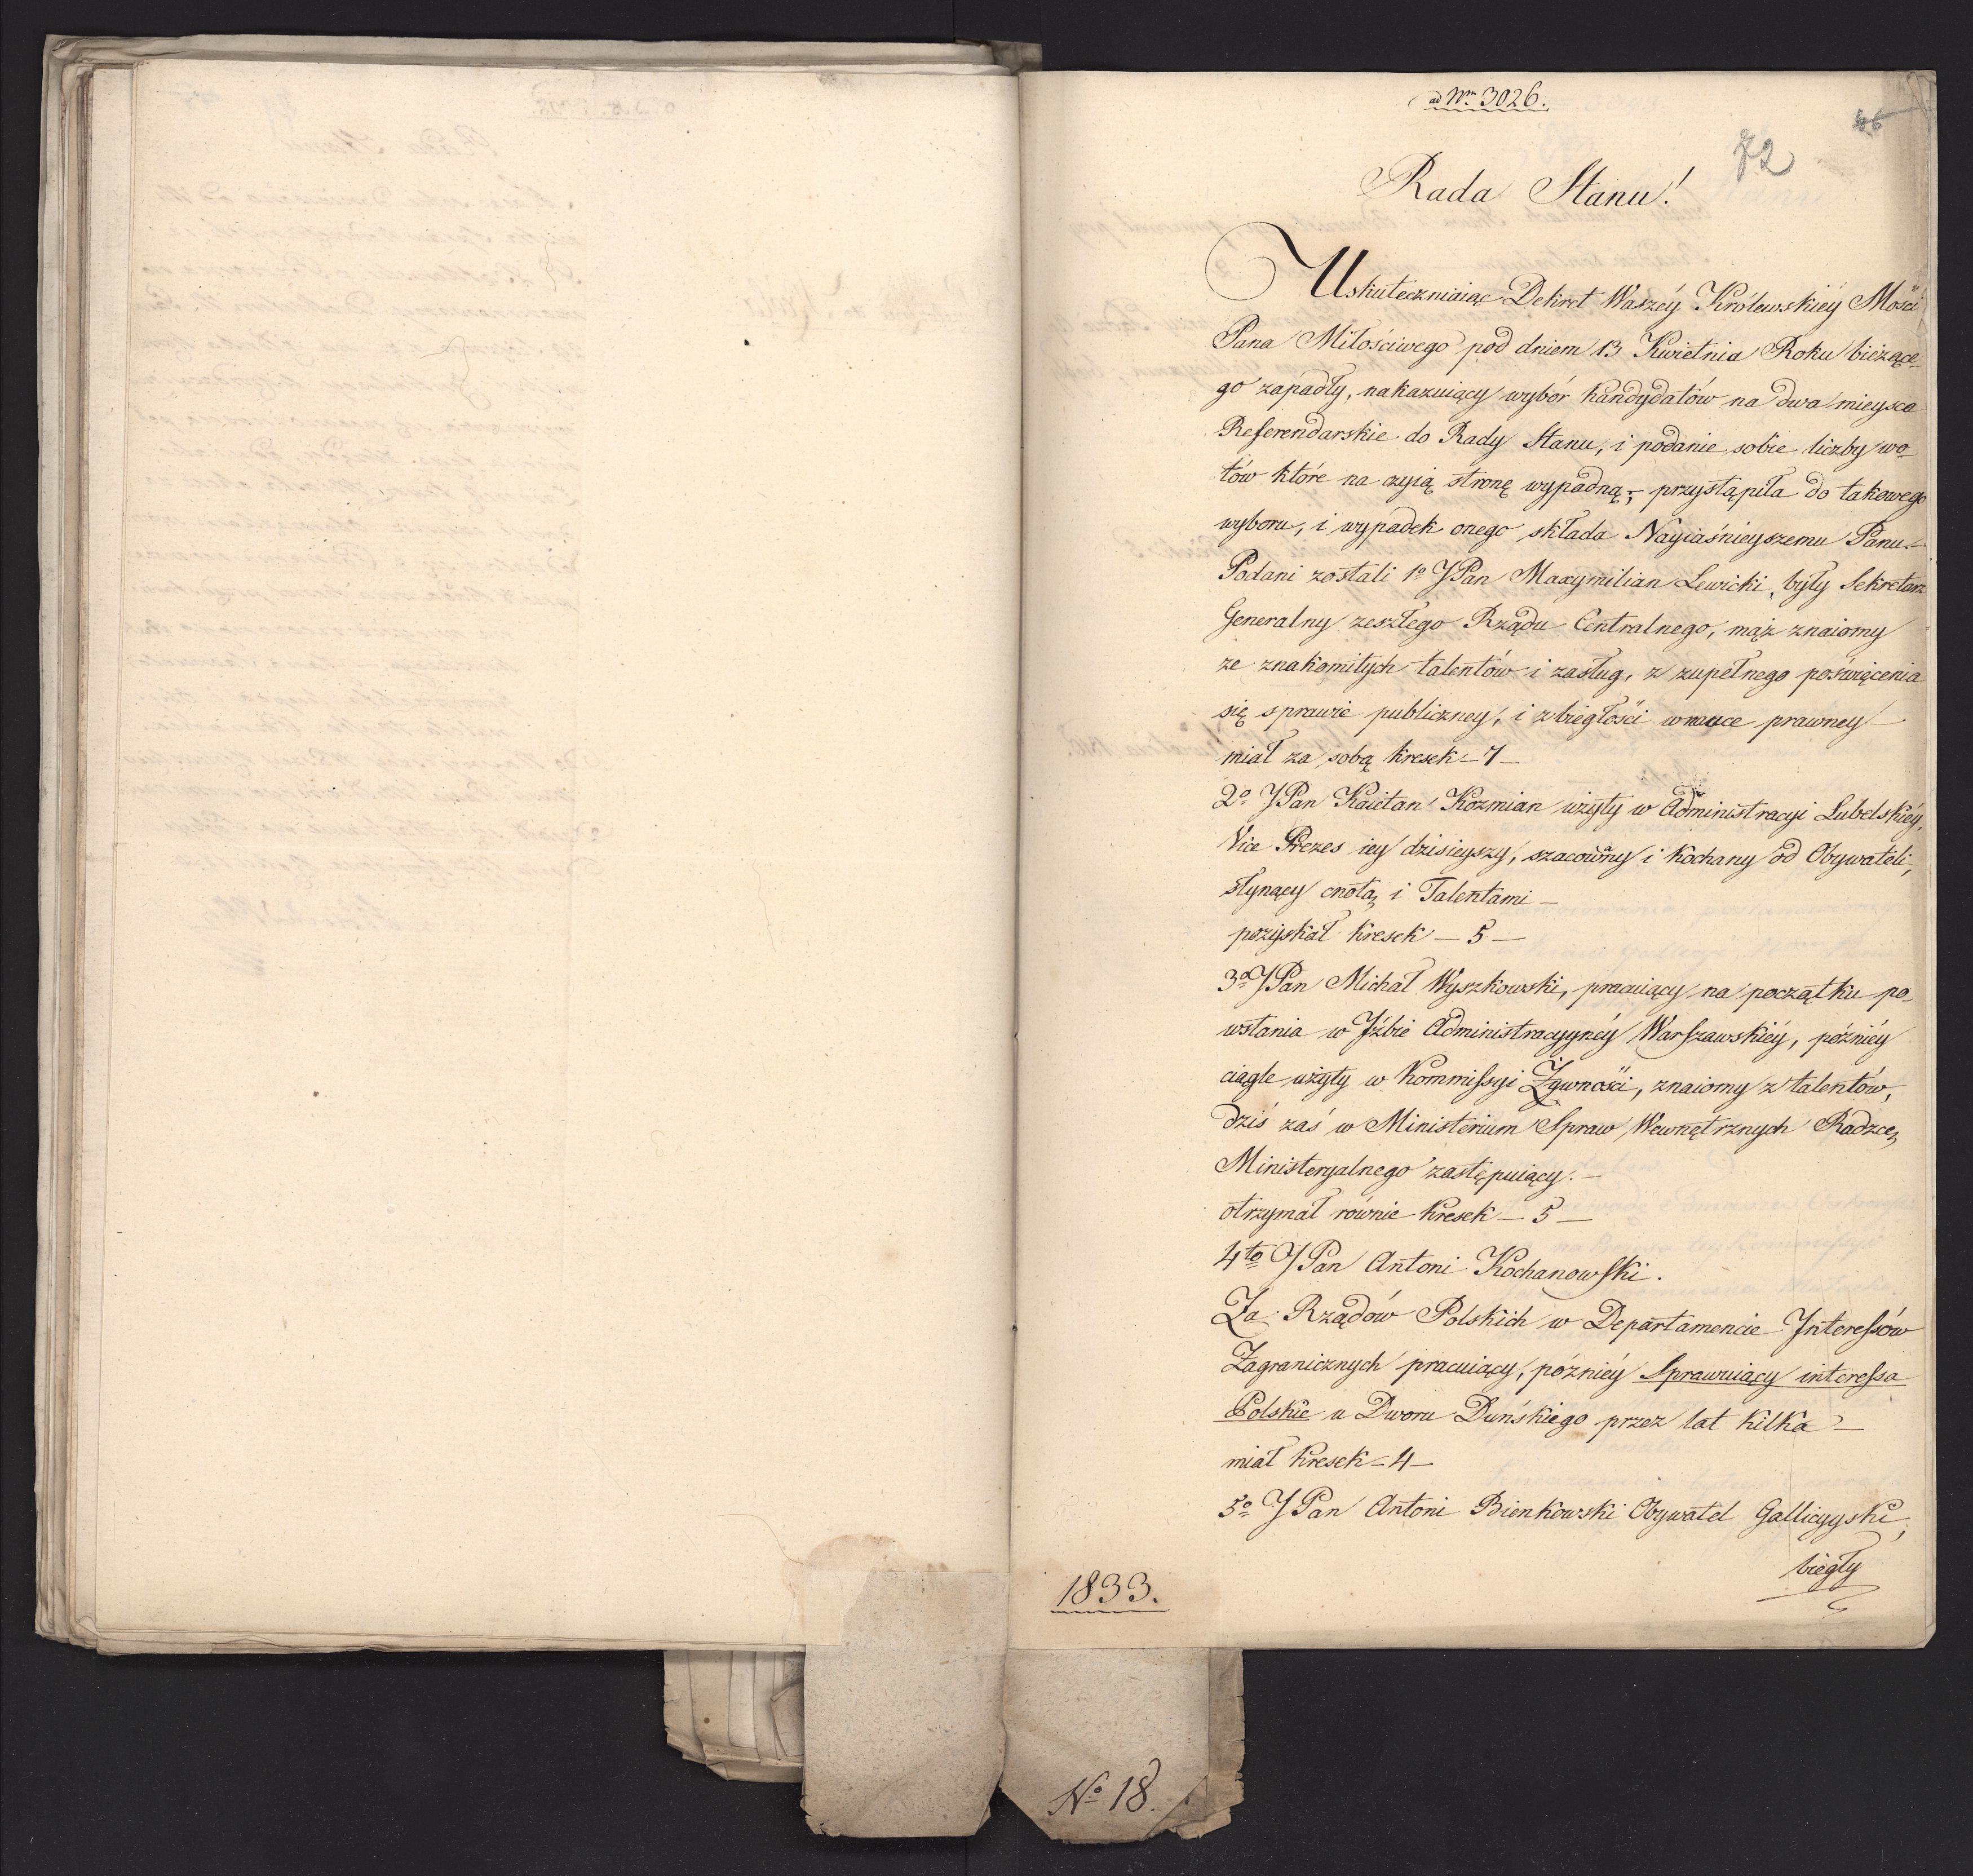 ad Nrm 3026.
46
72
Rada Stanu!
Uskuteczniaiąc Dekret Waszéy Królewskiéy Mości
Pana Miłościwego pod dniem 13 Kwietnia Roku bieżące-
go zapadły, nakazuiący wybór kandydatów na dwa mieysca
Referendarskie do Rady Stanu, i podanie sobie liczby wo-
tów które na czyią stronę wypadną, przystąpiła do takowego
wyboru, i wypadek onego składa Nayiaśnieyszemu Panu.—
Podani zostali 1o JPan Maxymilian Lewicki, były Sekretarz
Generalny zeszłego Rządu Centralnego, mąż znaiomy
ze znakomitych talentów i zasług, z zupełnego poświęcenia
się sprawie publiczney, i z biegłości w nauce prawney
miał za sobą kresek — 7 —
2o JPan Kaietan Kozmian użyty w Administracyi Lubelskiéy,
Vice Prezes iey dzisieyszy, szacowany i kochany od Obywateli,
słynący cnotą i Talentami —
pozyskał kresek — 5 —
3o JPan Michał Wyszkowski, pracuiący na początku po-
wstania w Jzbie Administracyynéy Warszawskiéy, późniéy
ciągle użyty w Kommissyi Żywności, znaiomy z talentów,
dziś zaś w Ministerium Spraw Wewnętrznych Radzcę
Ministeryalnego zastępuiący. —
otrzymał równie kresek — 5 —
4to JPan Antoni Kochanowski.
Za Rządów Polskich w Departamencie Jnteressów
Zagranicznych pracuiący, późniéy Sprawuiący interessa
Polskie u Dworu Duńskiego przez lat kilka —
miał kresek — 4 —
5o JPan Antoni Bienkowski Obywatel Gallicyyski,
biegły
1833.
No 18.